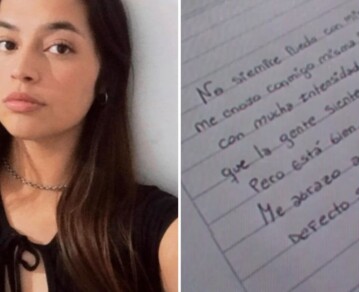 No siempre Puedo con mi
me enoja conmigo misma
con mucha intensidad
que la gente siente
Pero está bien
Me abrazo
Defecto